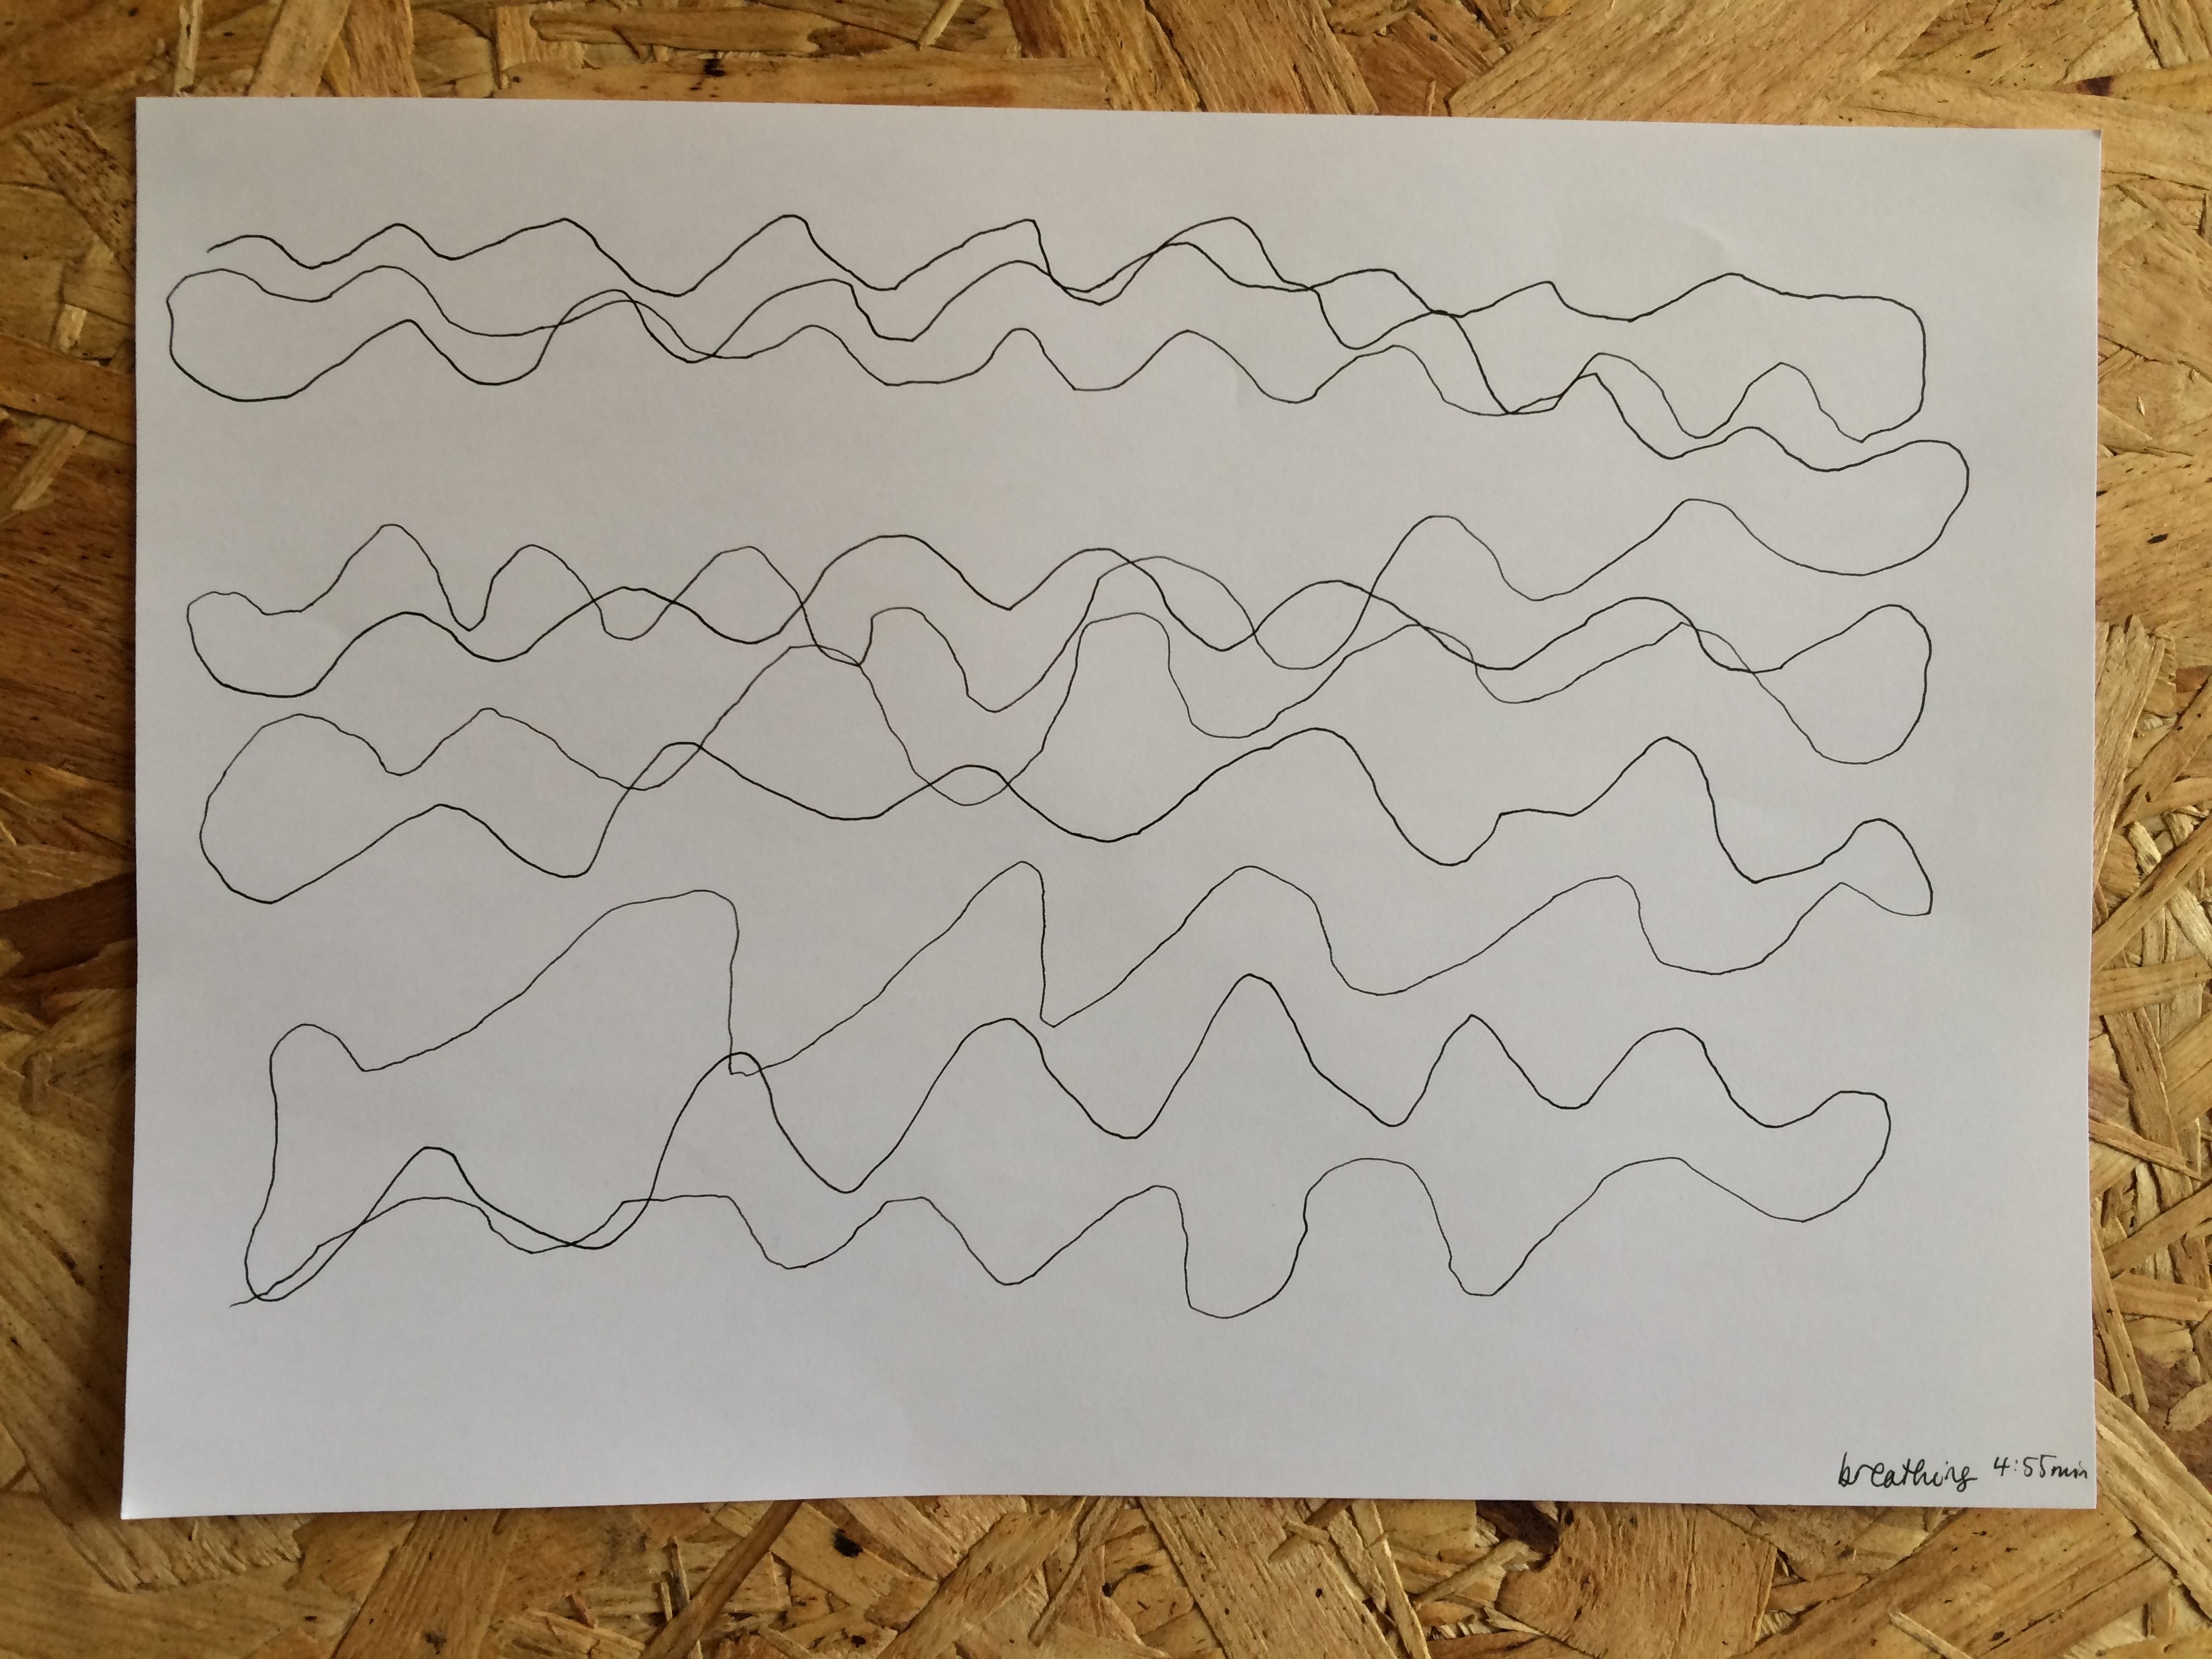 breathing 4:55min